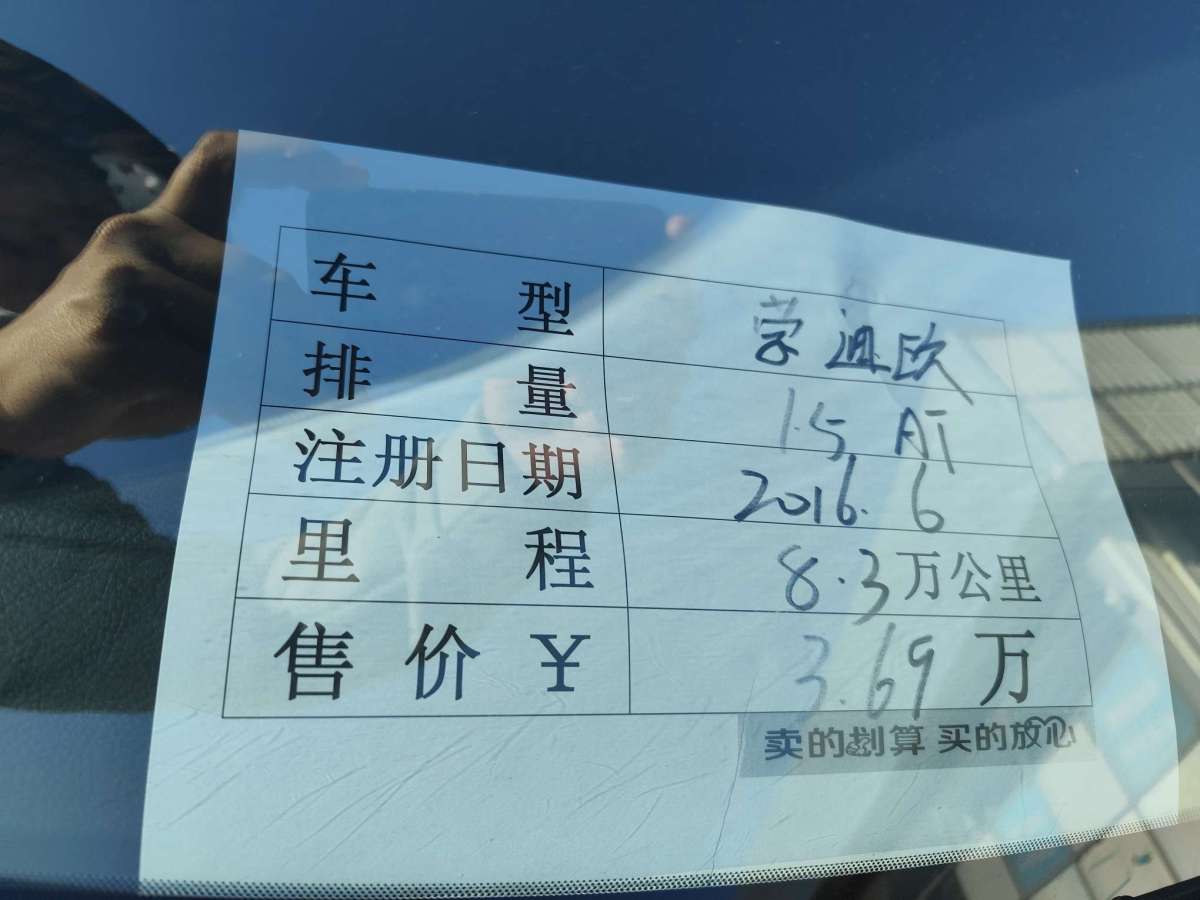 车型 蒙迪欧
排量 1.5 AT
注册日期 2016.6
里程 8.3万公里
售价¥ 3.69万
卖的划算 买的放心